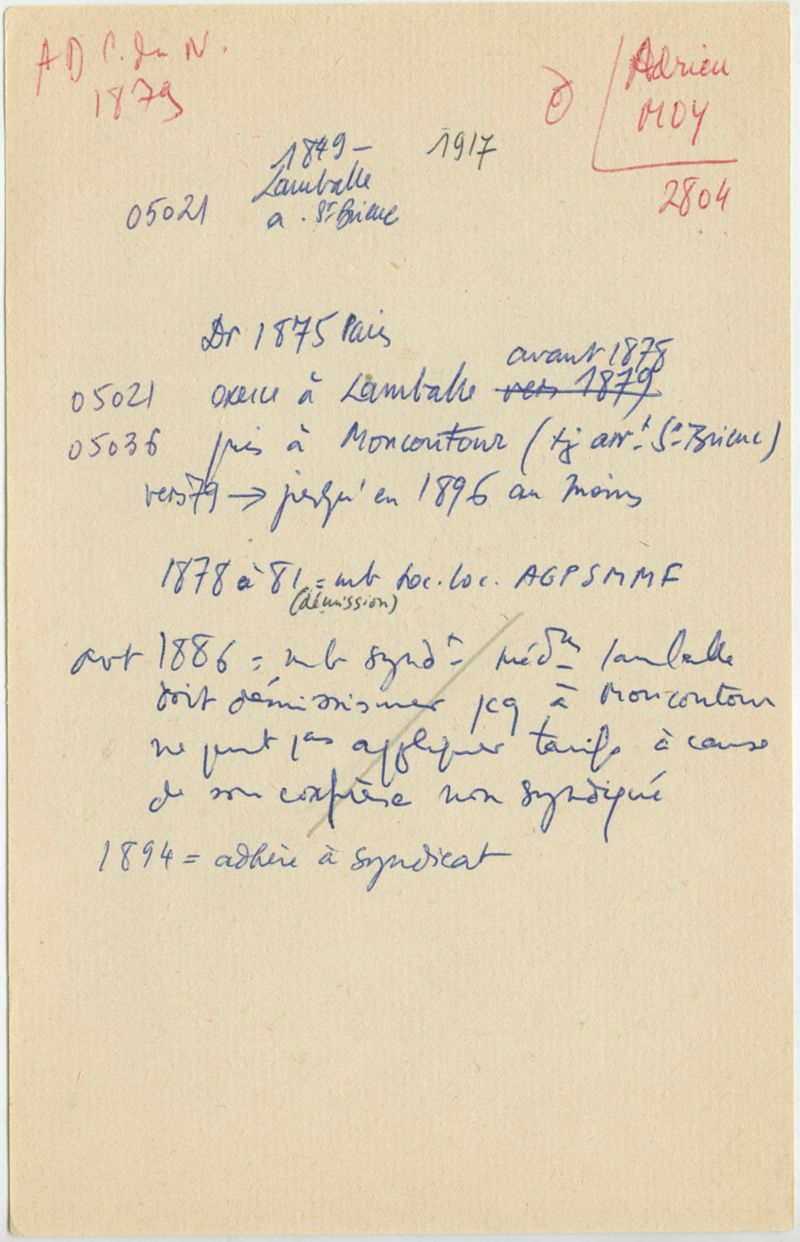 A D C. du N.
1879
Adrien
MOY
2804
1849 – 1917
Lamballe
05021 a. St Brieuc
Dr 1875 Paris
avant 1878
05021 exerce à Lamballe vers 1879
05036 puis à Moncontour (tj arrt St Brieuc)
vers 79 → jusqu'en 1896 au moins
1878 à 81 = mb Soc. loc. AGPSMMF
(démission)
avt 1886 = mb syndt médal Lamballe
doit démissionner pcq à Moncontour
ne peut pas appliquer tarifs à cause
de son confrère non syndiqué
1894 = adhère à syndicat